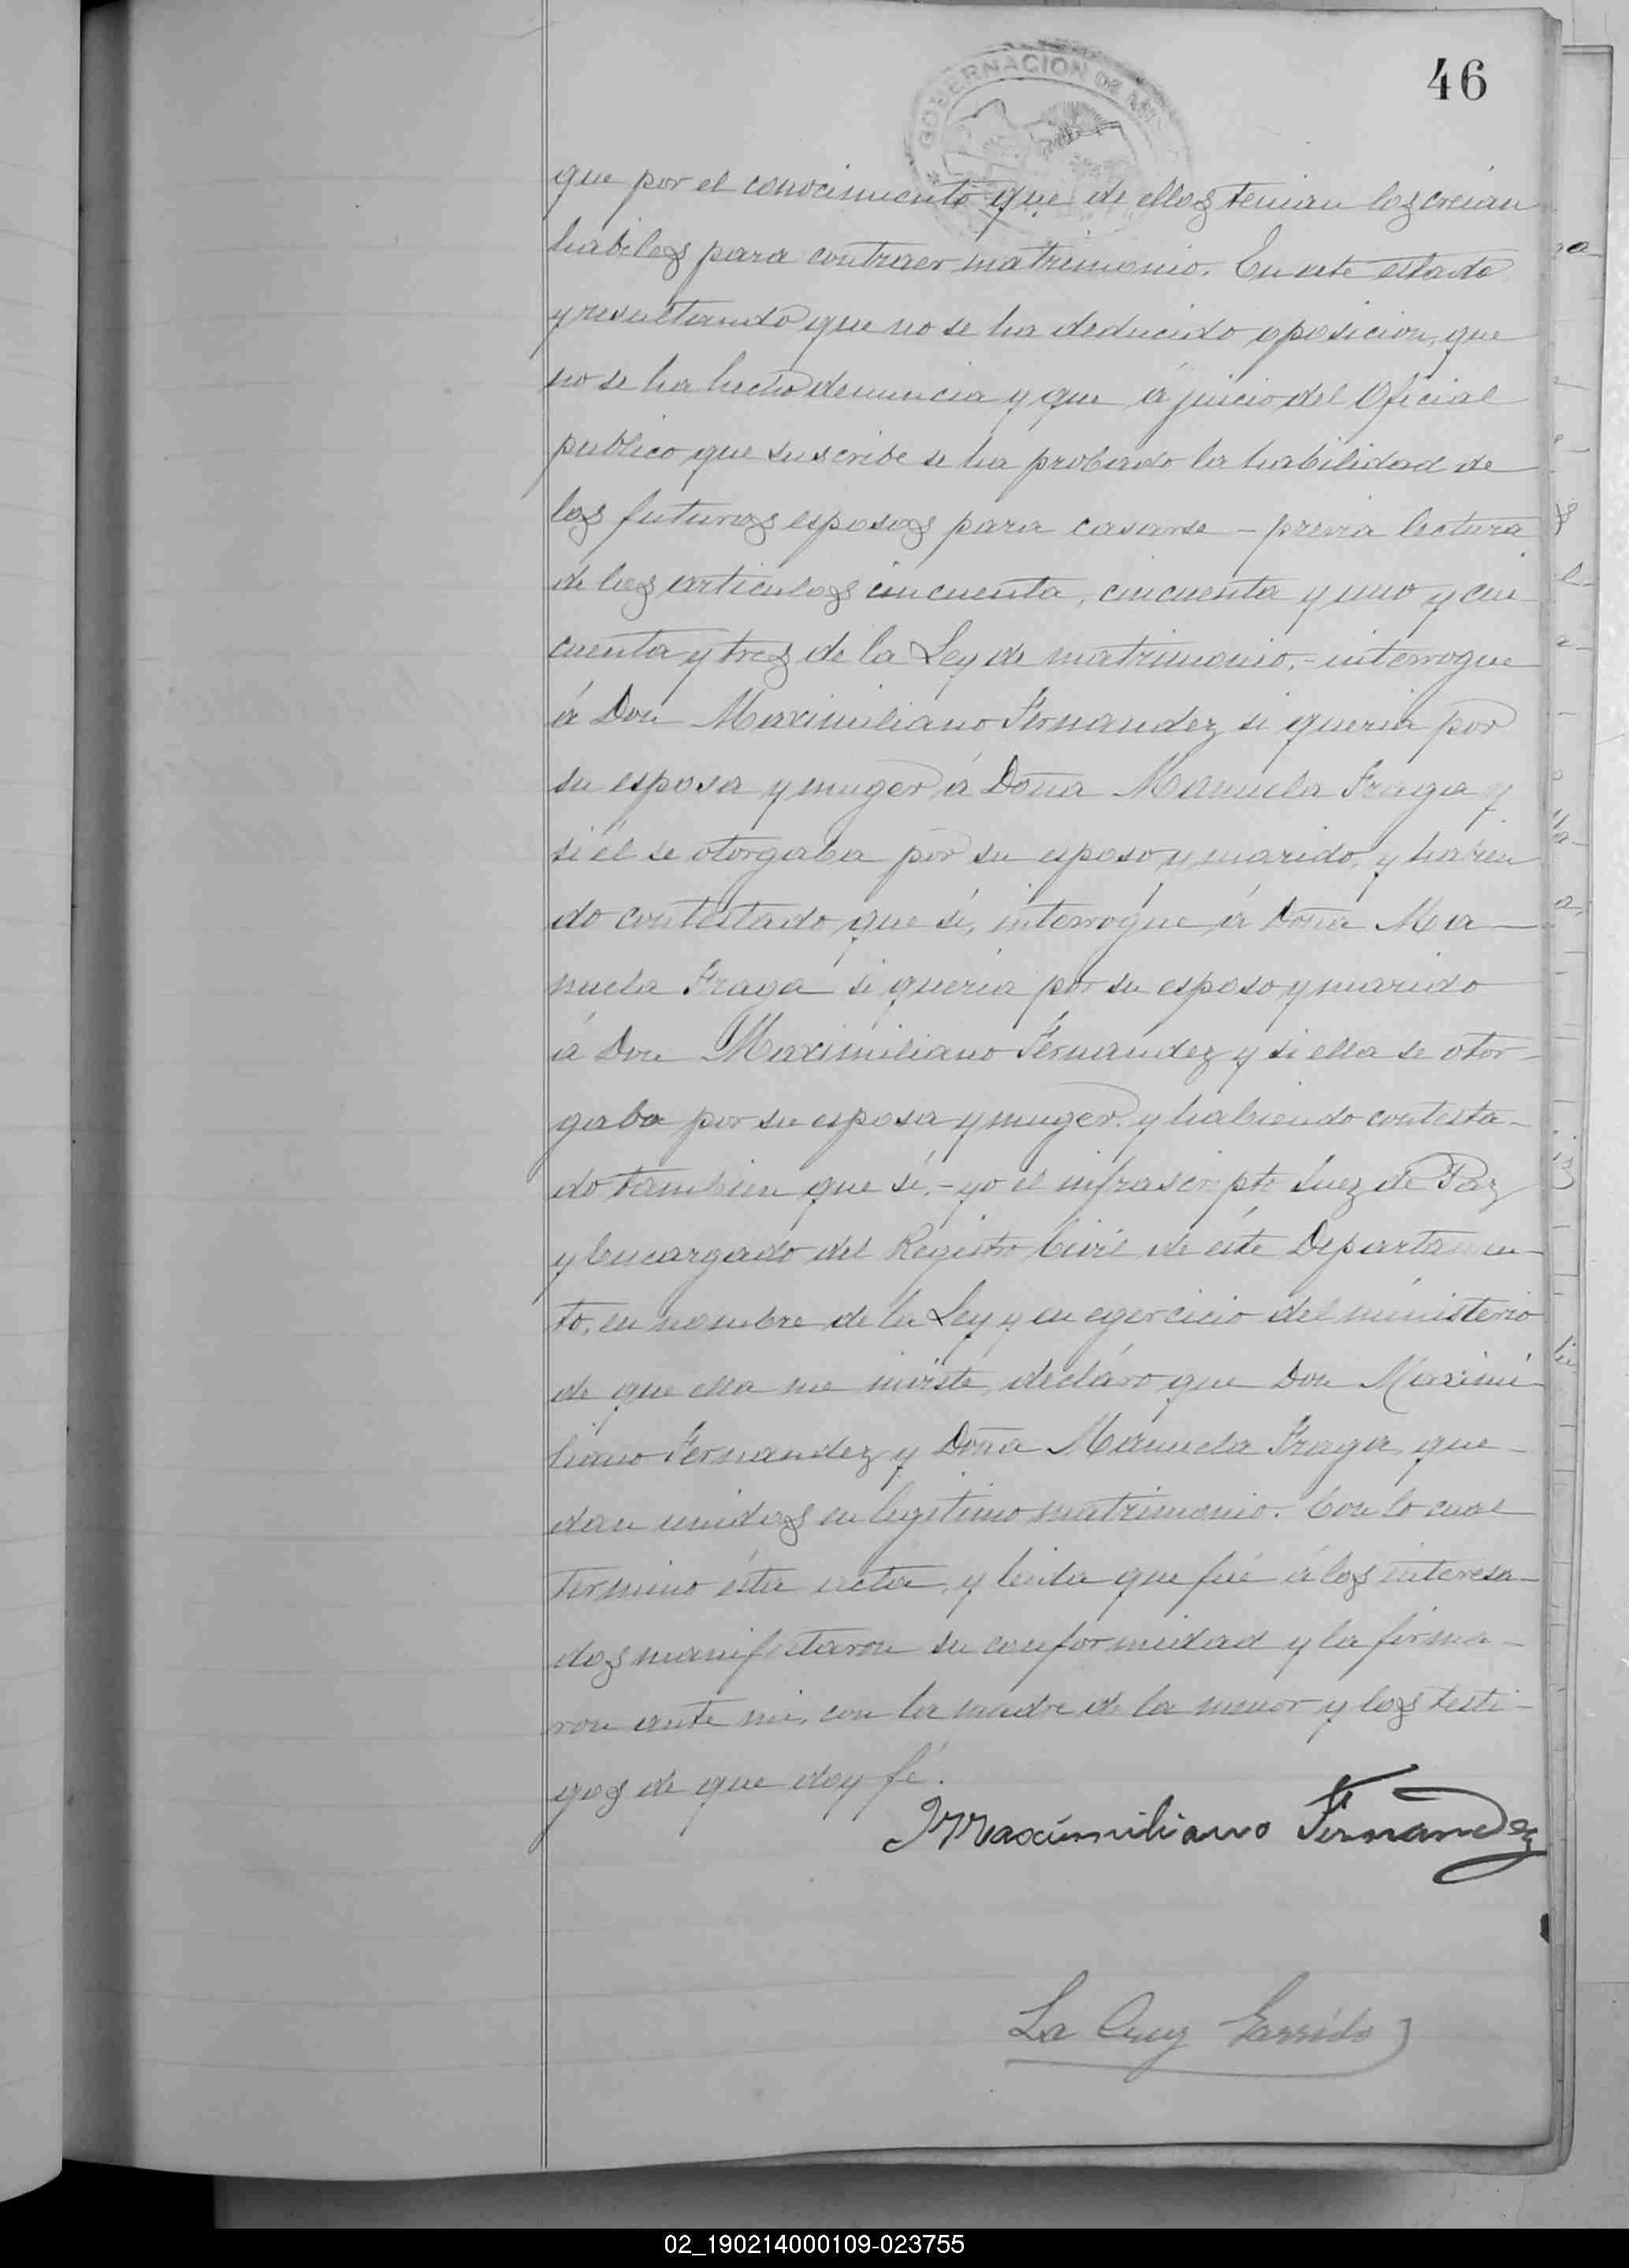 46
GOBERNACION DE
que por el conocimiento que de ellos tenian los creian
habiles para contraer matrimonio. En este estado
y resultando que no se ha deducido oposicion, que
no se ha hecho denuncia y que á juicio del Oficial
publico que suscribe se ha probado la habilidad de
los futuros esposos para casarse – previa lectura
de los articulos cincuenta, cincuenta y uno y cin
cuenta y tres de la Ley de matrimonio, – interrogue
á Don Maximiliano Fernandez si queria por
su esposa y muger á Doña Manuela Fraga y
si él se otorgaba por su esposo y marido, y habien
do contestado que sí, interrogue á Doña Ma
nuela Fraga si queria por su esposo y marido
á Don Maximiliano Fernandez y si ella se otor-
gaba por su esposa y muger y habiendo contesta-
do tambien que sí, – yo el infrascripto Juez de Paz
y Encargado del Registro Civil de éste Departamen-
to, en nombre de la Ley y en egercicio del ministerio
de que ella me inviste, decláro que Don Maximi
liano Fernandez y Doña Manuela Fraga, que-
dan unidos en legitimo matrimonio. Con lo cual
termino ésta acta, y leida que fué á los interesa-
dos manifestaron su conformidad y la firma-
ron ante mi, con la madre de la menor y los testi-
gos de que doy fé.
Maximiliano Fernandez
La Cruz Garrido
02_190214000109-023755